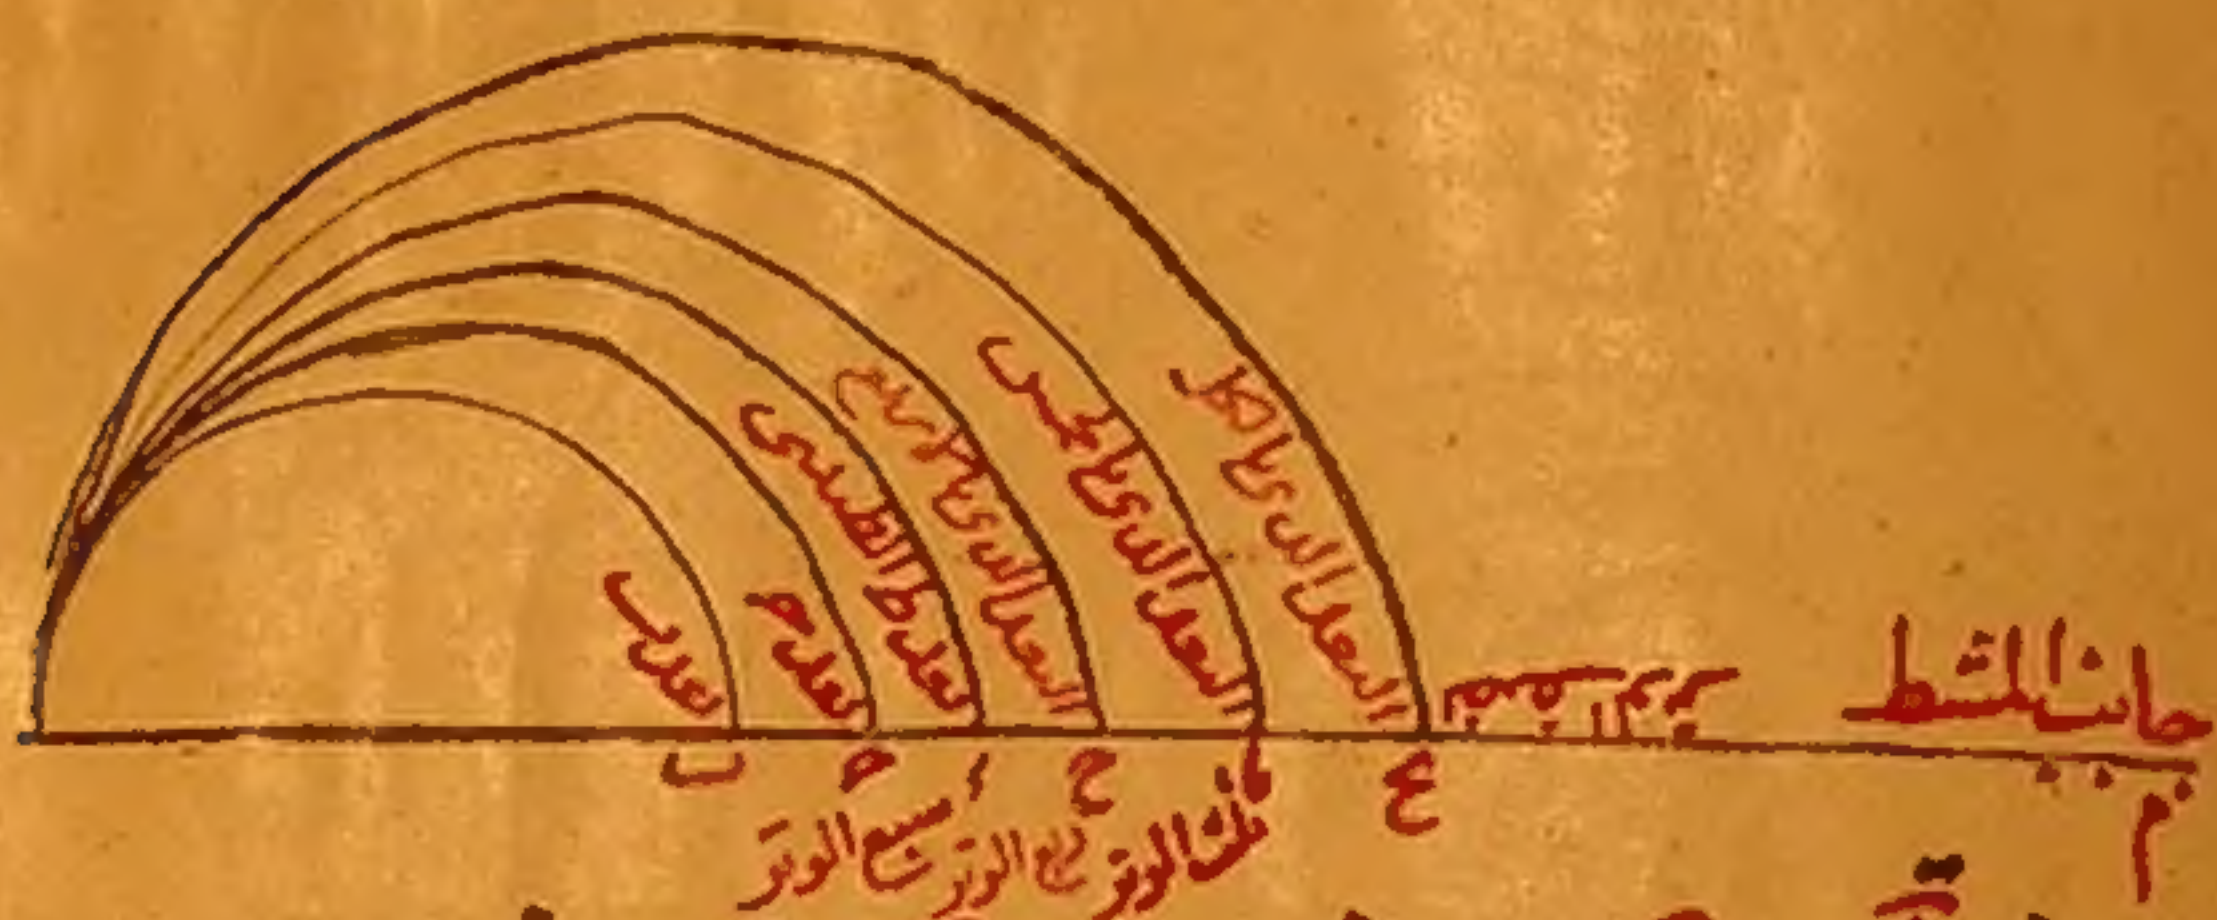 البعد الذي بالكل
البعد الذي بالخمس
البعد الذي بالاربع
بعد ط الطنينى
بعد ج
بعد ب
جانب المشط
م
ع
ح
ج
ب
ثلث الوتر
ربع الوتر
تسع الوتر